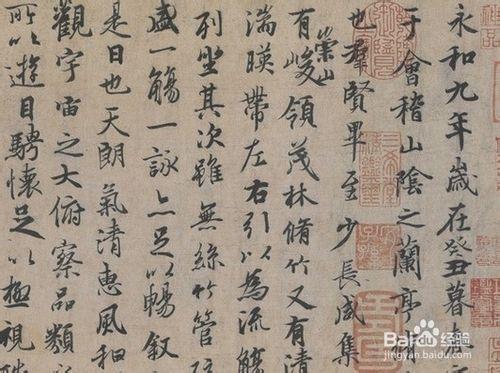 永和九年歲在癸丑暮春
于會稽山陰之蘭亭脩
也羣賢畢至少長咸集
有崇山峻領茂林脩竹又有清
湍暎帶左右引以為流觴
列坐其次雖無絲竹管
盛一觴一詠亦足以暢敘
是日也天朗氣清惠風和
觀宇宙之大俯察品類
所以遊目騁懷足以極視
Baidu经验
jingyan.baidu.com